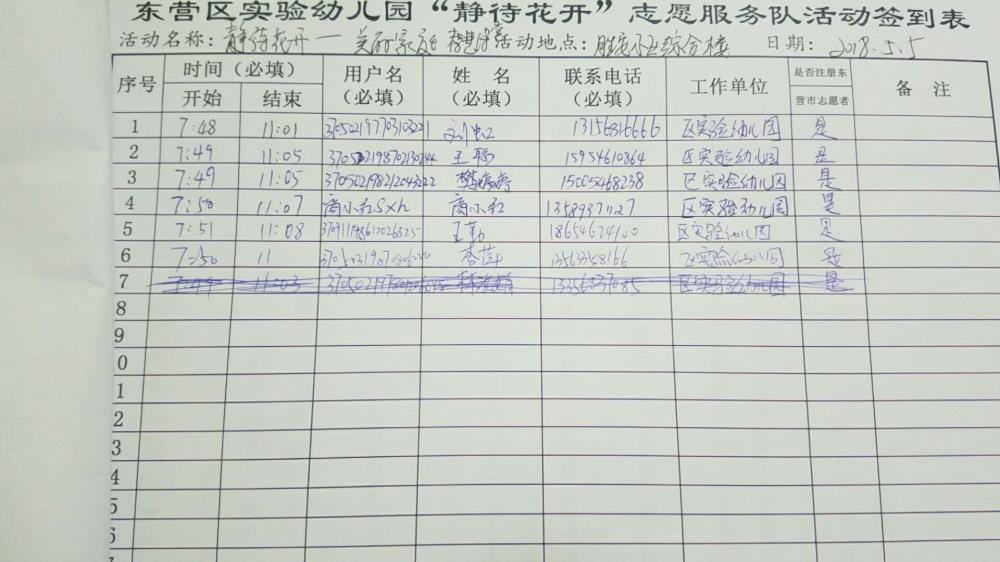 东营区实验幼儿园“静待花开”志愿服务队活动签到表
活动名称：静待花开— 美丽家庭 活动地点： 综合楼 日期：2018.5.5
序号 时间（必填） 用户名（必填） 姓 名（必填） 联系电话（必填） 工作单位 是否注册东营市志愿者 备 注
开始 结束
1 7:48 11:01 370502197703103221 刘虹 13156816666 区实验幼儿园 是
2 7:49 11:05 王聪 15954610864 区实验幼儿园 是
3 7:49 11:05 370502198212043222 樊婷婷 15005468238 区实验幼儿园 是
4 7:50 11:07 商小红sxh 商小红 13589971127 区实验幼儿园 是
5 7:51 11:08 王勤 18654624100 区实验幼儿园 是
6 7:50 11 李萍 13563358166 区实验幼儿园 是
7 7:49 11:03 13356837085 区实验幼儿园 是
8
9
0
1
2
3
4
5
6